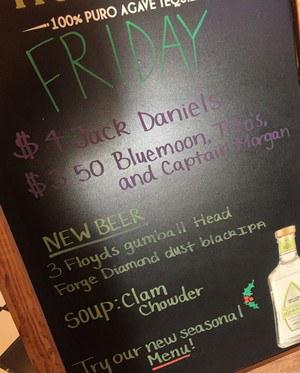 100% PURO AGAVE TEQUILA
FRIDAY
$4 Jack Daniels
$3.50 Bluemoon, Tito's,
and Captain Morgan
NEW BEER
3 Floyds gumball Head
Forge Diamond dust black IPA
Soup: Clam
Chowder
Try our new seasonal
Menu!